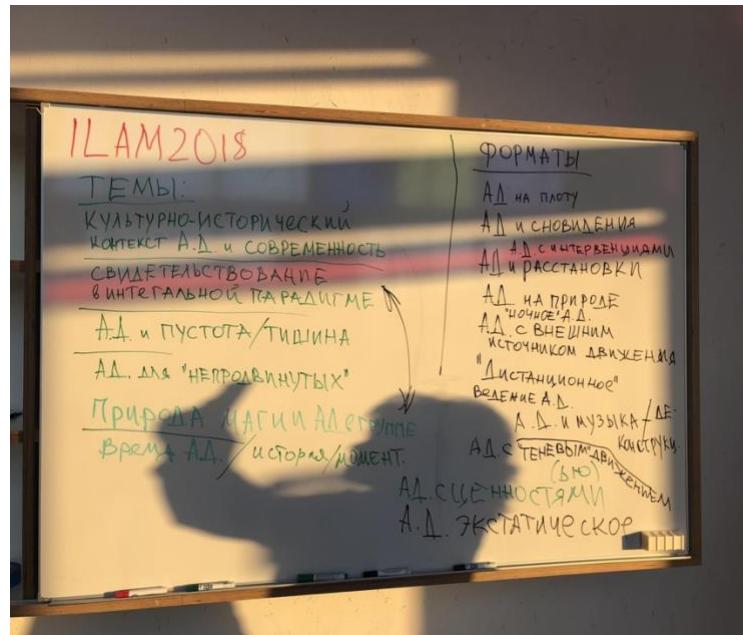 ILAM2018
ТЕМЫ:
КУЛЬТУРНО-ИСТОРИЧЕСКИЙ
КОНТЕКСТ А.Д. И СОВРЕМЕННОСТЬ
СВИДЕТЕЛЬСТВОВАНИЕ
В ИНТЕГАЛЬНОЙ ПАРАДИГМЕ
А.Д. И ПУСТОТА/ТИШИНА
АД. ДЛЯ "НЕПРОДВИНУТЫХ"
ПРИРОДА МАГИИ АД. С ГРУППЕ
ВРЕМЯ А.Д. / ИСТОРИЯ/МОМЕНТ.
ФОРМАТЫ
АД НА ПЛОТУ
АД И СНОВИДЕНИЯ
А.Д. С ИНТЕРВЕНЦИЯМИ
АД И РАССТАНОВКИ
АД НА ПРИРОДЕ
"НОЧНОЕ" А.Д.
АД. С ВНЕШНИМ
ИСТОЧНИКОМ ДВИЖЕНИЯ
"ДИСТАНЦИОННОЕ"
ВЕДЕНИЕ А.Д.
А.Д. И МУЗЫКА / ДЕ-
КОНСТРУКЦ.
АД. С ТЕНЕВЫМ ДВИЖЕНИЕМ
(ЬЮ)
АД. С ЦЕННОСТЯМИ
А.Д. ЭКСТАТИЧЕСКОЕ